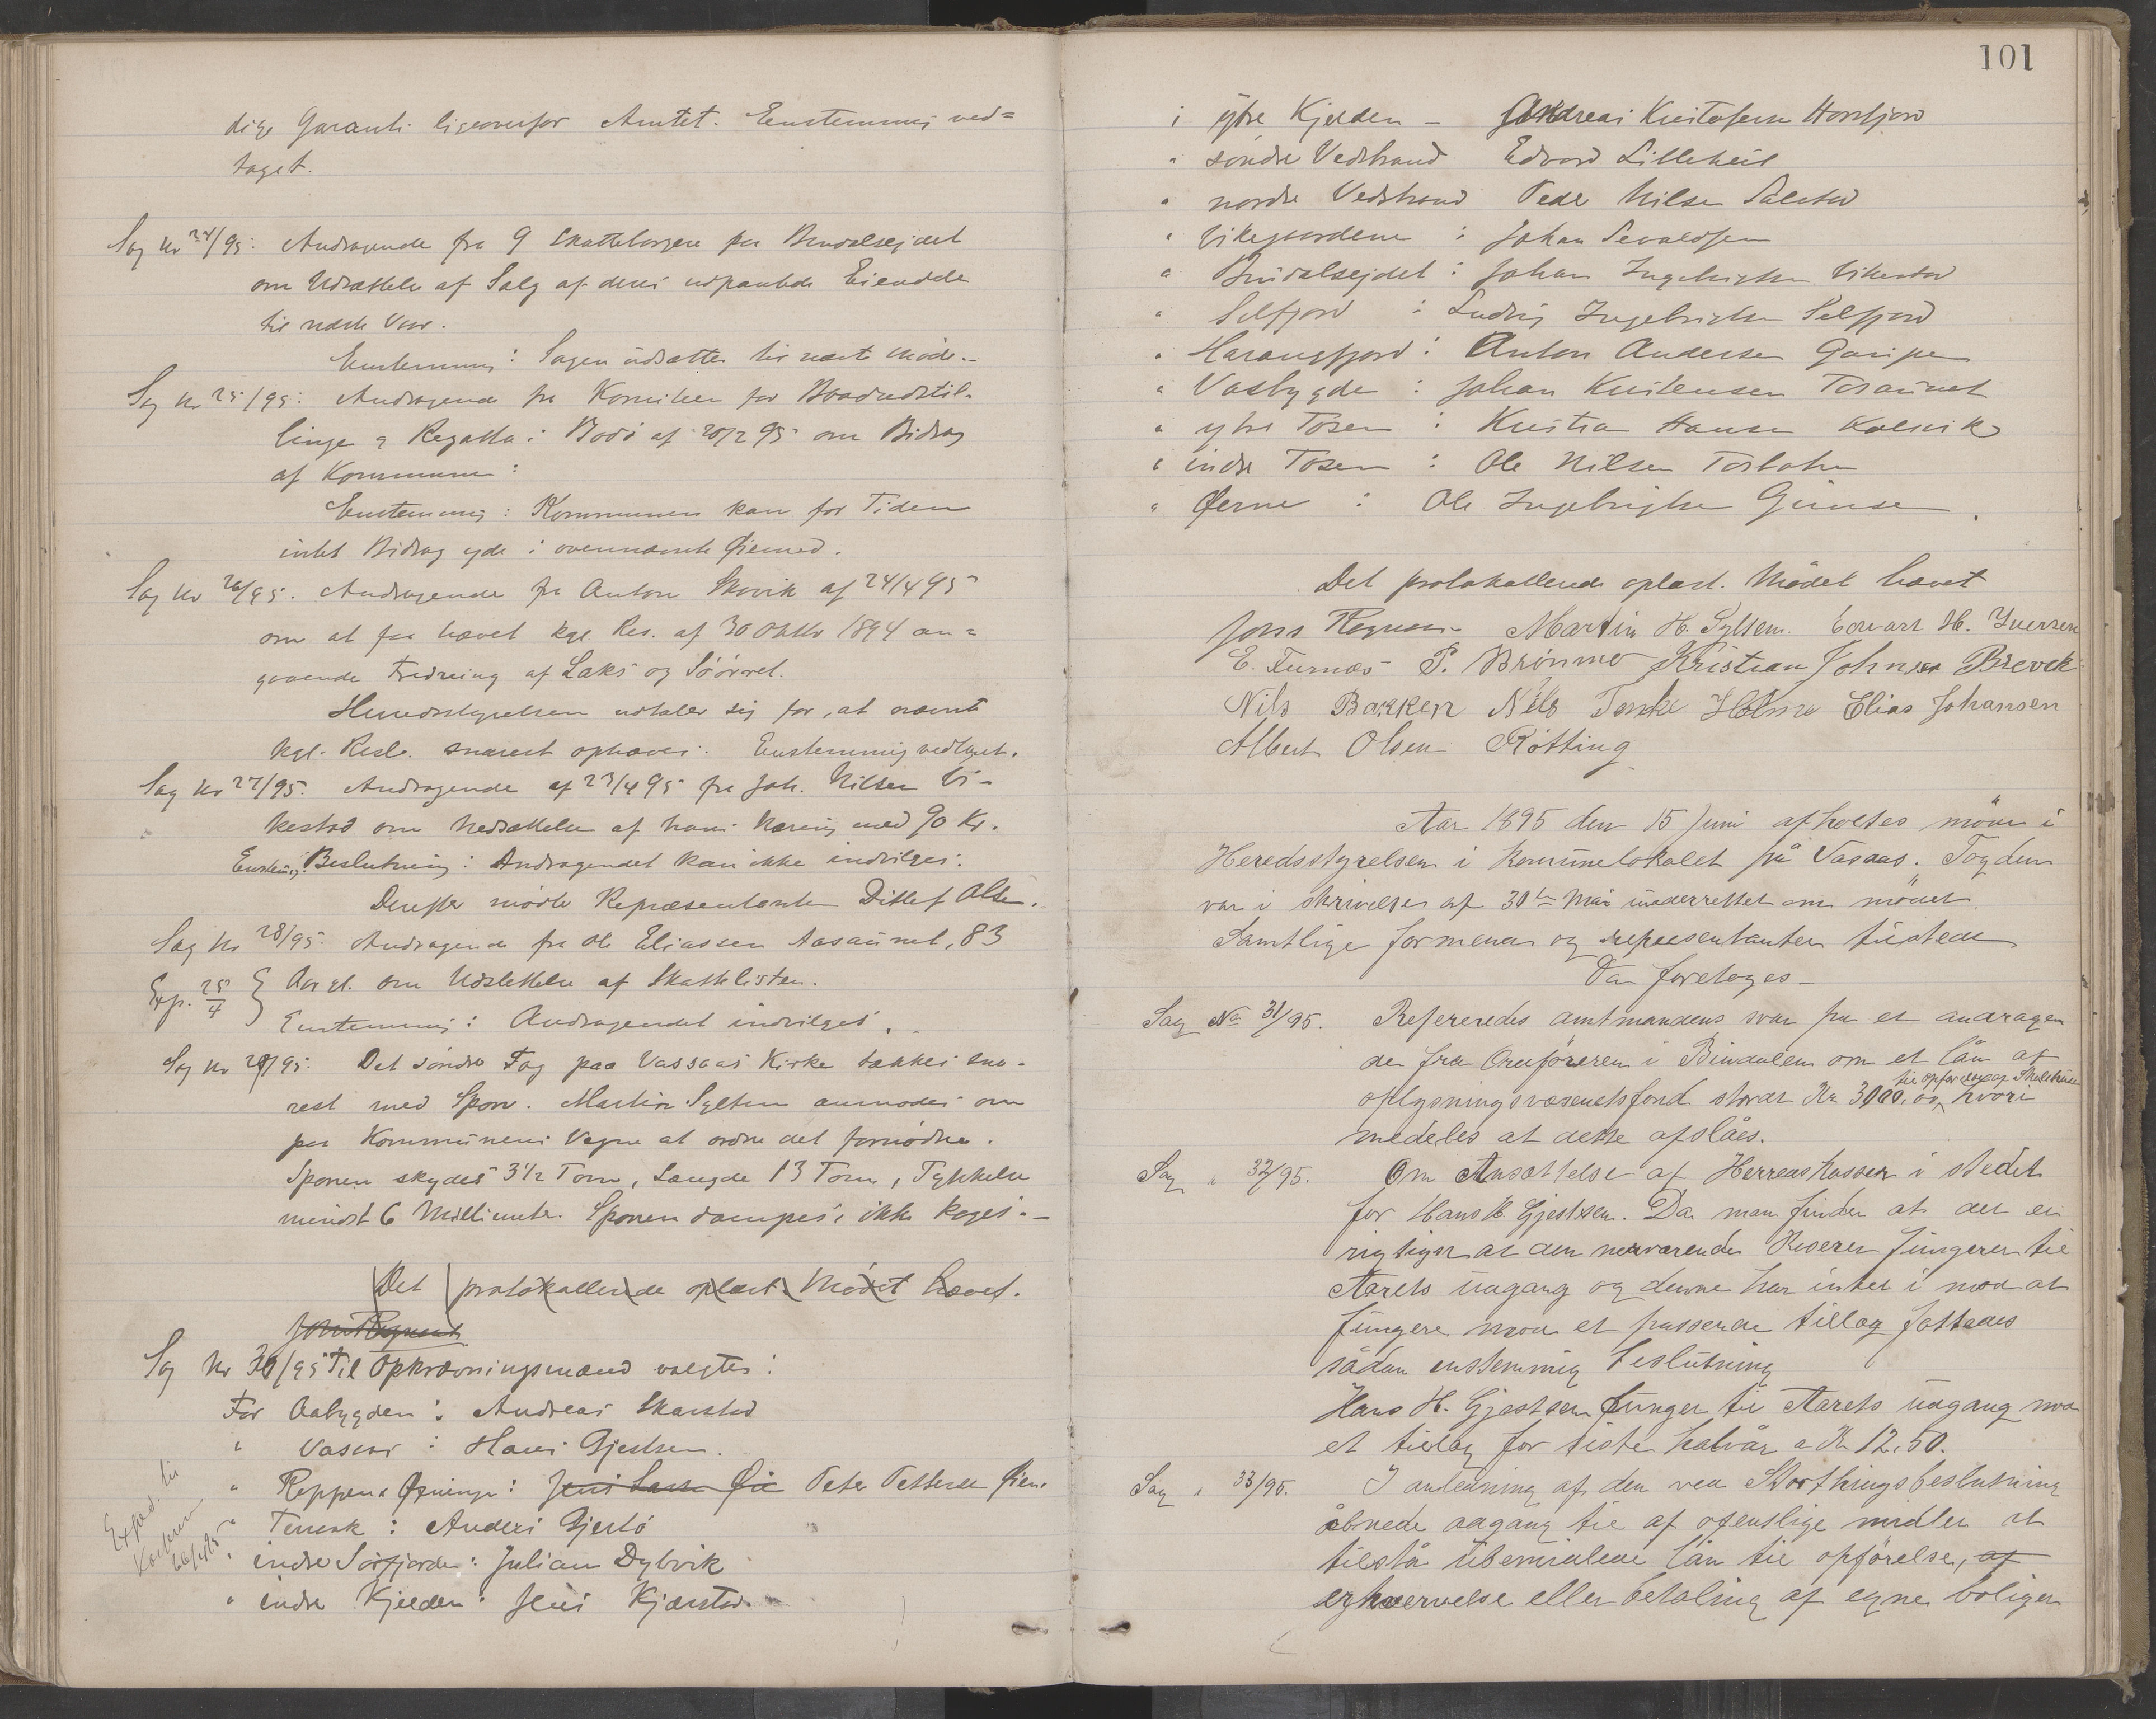 dige Garanti ligeoverfor Amtet. Eenstemmig ved=
taget.
Sag Nr 24/95: Andragende fra 9 Skatteborgere paa Bindalsejdet
om Udsættelse af Salg af deres udpantede Eiendele
til næste Vaar.
Eenstemmig: Sagen udsættes til næste Møde.-
Sag Nr 25/95: Andragende fra Komiteen for Baadudstil-
linge & Regatta i Bodö af 20/2 95 om Bidrag
af Kommunen:
Eenstemmig: Kommunen kan for Tiden
intet Bidrag yde i ovennævnte Øiemed.
Sag Nr 26/95. Andragende fra Anton Skovik af 24/4 95
om at faa hævet kgl. Res. af 30 Oktbr 1894 an=
gaaende Fredning af Laks og Söörret.
Herredsstyrelsen udtaler sig for, at nævnte
kgl. Resl. snarest ophæves. Eenstemmig vedtaget.
Sag Nr 27/95. Andragende af 23/4 95 fra Joh. Nilsen Vi-
kestad om Nedsættelse af hans Næring med 90 Kr.
Enstemig Beslutning: Andragendet kan ikke indvilges.
Derefter mödte Repræsentanten Ditlef Olsen.
Sag Nr 28/95. Andragende fra Ole Eliassen Aasaunet, 83
Exp. 25/4 } Aar gl. om Udslettelse af Skattelisten.
Eenstemmig: Andragendet indvilges.
Sag Nr 29/95: Det söndre Tag paa Vassaas Kirke tækkes sna-
rest med Spon. Martin Sylten anmodes om
paa Kommunens Vegne at ordne det fornödne.
Sponen skydes 3½ Tom, Længde 13 Tom, Tykkelse
mindst 6 Millimeter. Sponen dampes, ikke koges.-
Det protokollerede oplæst. Mödet hævet.
Sag Nr 30/95 Til Opkrævningsmænd valgtes:
For Aabygden: Andreas Skarstad
" Vasaas: Hans Gjestsen.
" Reppen & Øininge: Jens Larsen Øie Peter Pettersen Øien.
" Terraak: Anders Gjerlö
" indre Sörfjorden: Julian Dybvik
" indre Kjellen: Jens Kjærstad.
Exped. til
Kasseren
101
i ytre Kjelden - Andreas Kristofersen Horsfjord
" söndre Vedstrand Edvard Lilleheil
" nordre Vedstrand Peder Nilsen Salstad
" Vikegaardene: Johan Sevaldsen
" Bindalsejdet: Johan Ingebrigtsen Vikestad
" Selfjord: Ludvig Ingebrigtsen Selfjord
" Harangsfjord: Anton Andersen Garipen
" Vasbygden: Johan Kristensen Toraunet
" ytre Tosen: Kristian Hansen Kalvik
" indre Tosen: Ole Nilsen Tosbotn
" Øerne: Ole Ingebrigtsen Gimse.
Det protokollerede oplæst. Mödet hævet
Martin H. Sylten. Edvart H. Iversen
E. Furnæs P. Brönmo Kristian Johnsen Brevek
Nils Bakken Nils Terske Holm Elias Johansen
Albert Olsen Rötting
Aar 1895 den 15 Juni afholdtes möde i
Heredsstyrelsen i Komunelokalet på Vasaas. Fogden
var i skrivelse af 30te Mai underrettet om mödet.
Samtlige formænd og representanter tilstede
Da foretoges-
Sag No 31/95. Refereredes amtmandens svar paa et andragen
de fra Ordföreren i Bindalen om et lån af
oplysningsvæsenets fond stort Kr 3000, til opförelse af Skolehuse og hvori
medeles at dette afslåes.
Sag " 32/95. Om Ansættelse af Herredskasser i stedet
for Hans H. Gjestsen. Da man finder at det er
rigtigst at den nuværende Kaserer fungerer til
Aarets udgang og denne har intet i mod at
fungere mod et passende tillæg fattedes
sådan enstemmig beslutning
Hans H. Gjestsen funger til Aarets udgang mod
et tillæg for siste halvår a Kr 12,50.
Sag " 33/95. I anledning af den ved Storthingsbeslutning
åbnede adgang til af ofentlige midler at
tilstå ubemidlede lån til opförelse, af
erhværvelse eller betaling af egne boliger